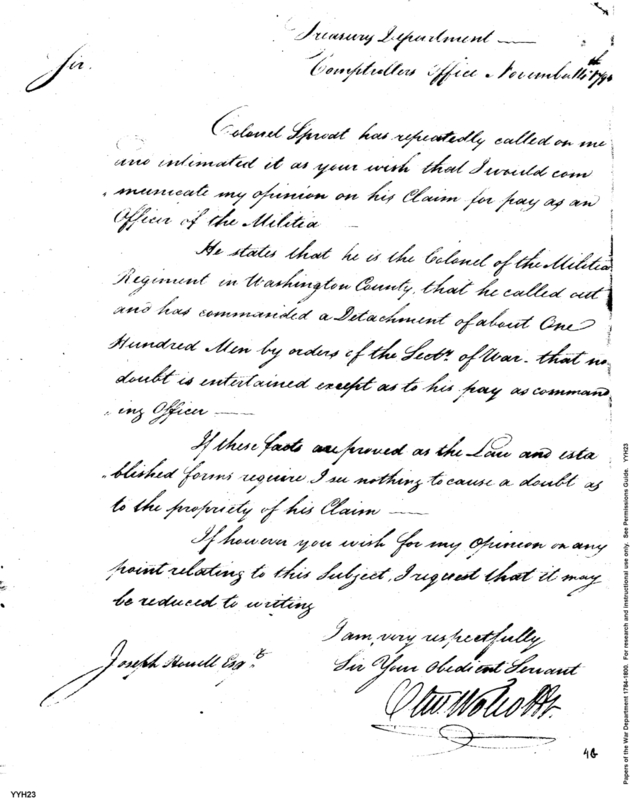 Treasury Department
Comptrollers Office November 14th
Sir.
Colonel Sproat has repeatedly called on me
and intimated it as your wish that I would com
municate my opinion on his Claim for pay as an
Officer of the Militia
He states that he is the Colonel of the Militia
Regiment in Washington County, that he called out
and has commanded a Detachment of about One
Hundred Men by orders of the Secty. of War. that no
doubt is entertained except as to his pay as command
ing Officer
If these facts are proved as the Law and esta
blished forms require I see nothing to cause a doubt as
to the propriety of his Claim
If however you wish for my opinion on any
point relating to this Subject, I request that it may
be reduced to writing
I am, very respectfully
Sir Your Obedient Servant
Joseph Howell Esqr.
Oliv. Wolcott Jr.
46
YYH23
Papers of the War Department 1784-1800. For research and instructional use only. See Permissions Guide. YYH23